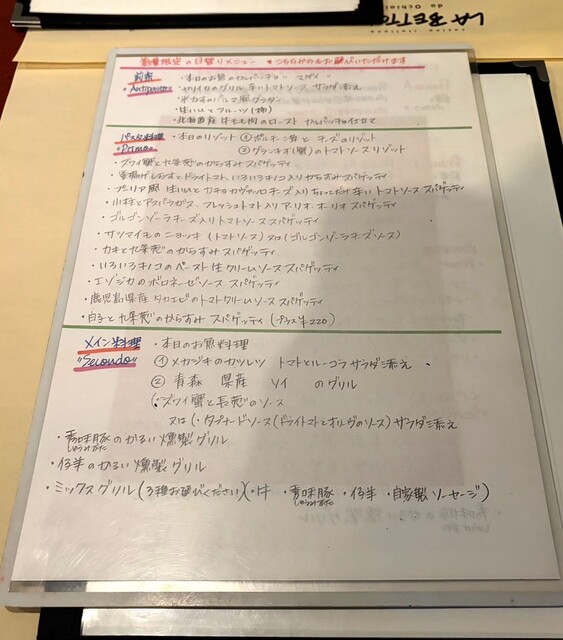 LA BETTOLA
da Ochiai
数量限定の日替りメニュー ★こちらからもお選びいただけます
前菜
"Antipasto"
・本日のお魚のカルパッチョ" マダイ"
・ヤリイカのグリル 辛いトマトソース サラダ添え
・ポカオのパルマ風グラタン
・生ハムとフルーツ(柿)
・北海道産 牛もも肉のロースト カルパッチョ仕立て
パスタ料理
"Primo"
・本日のリゾット ①ポルチーニ茸と チーズのリゾット
②グランキオ(蟹)のトマトソースリゾット
・ズワイ蟹と九条葱のからすみスパゲッティ
・釜揚げしらすとドライトマト いろいろキノコ入りからすみスパゲッティ
・プーリア風 生ハムとカチョカヴァッロチーズ入りちょっとだけ辛いトマトソース スパゲッティ
・小柱とアスパラガス、フレッシュトマト入りアーリオ・オーリオ スパゲッティ
・ゴルゴンゾーラチーズ入りトマトソーススパゲッティ
・サツマイモのニョッキ (トマトソース) 又は(ゴルゴンゾーラチーズソース)
・カキと九条葱のからすみスパゲッティ
・いろいろキノコのペースト 生クリームソース スパゲッティ
・エゾジカのボロネーゼソース スパゲッティ
・鹿児島県産 タカエビのトマトクリームソース スパゲッティ
・白子と九条葱のからすみ スパゲッティ (プラス¥220)
メイン料理
"Secondo"
・本日のお魚料理
① メカジキのカツレツ トマトとルーコラサラダ添え
② 青森 県産 ソイ のグリル
(・ズワイ蟹と長葱のソース
又は(・タプナードソース(ドライトマトとオリーヴのソース) サラダ添え
・秀味豚のかるい燻製グリル
しゅうみぶた
・仔羊のかるい燻製グリル
・ミックスグリル(3種お選びください)(・牛 ・秀味豚 ・仔羊 ・自家製ソーセージ)
しゅうみぶた